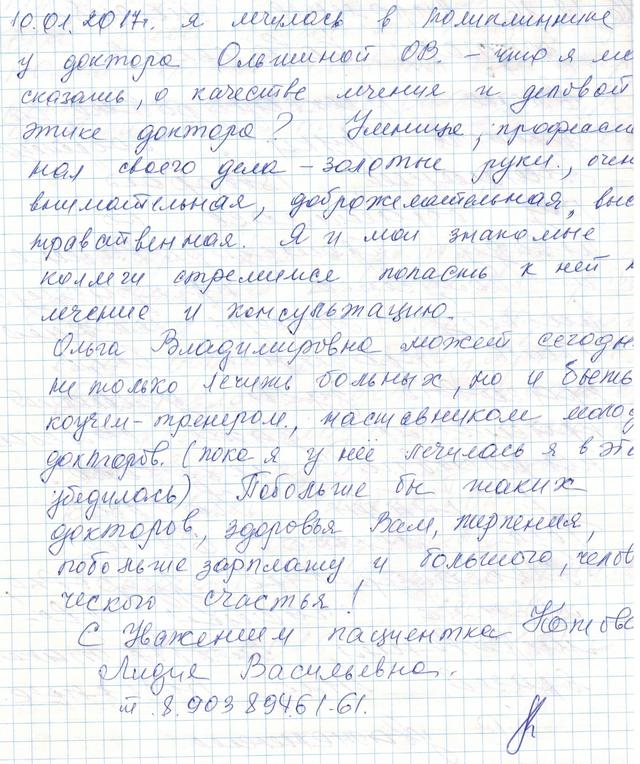 10.01.2017г. я лечилась в поликлинике
у доктора Ольшиной О.В. – что я мо
сказать, о качестве лечения и деловой
этике доктора? Умница, професси
нал своего дела – золотые руки., очен
внимательная, доброжелательная, выс
нравственная. Я и мои знакомые
коллеги стремимся попасть к ней н
лечение и консультацию.
Ольга Владимировна может сегодн
не только лечить больных, но и быть
коучем-тренером., наставником моло
докторов. (пока я у неё лечилась я в это
убедилась) Побольше бы таких
докторов., здоровья Вам, терпения,
побольше зарплату и большого, челов
ческого счастья!
С Уважением пациентка
Лидия Васильевна.
т. 8.903 894.61-61.